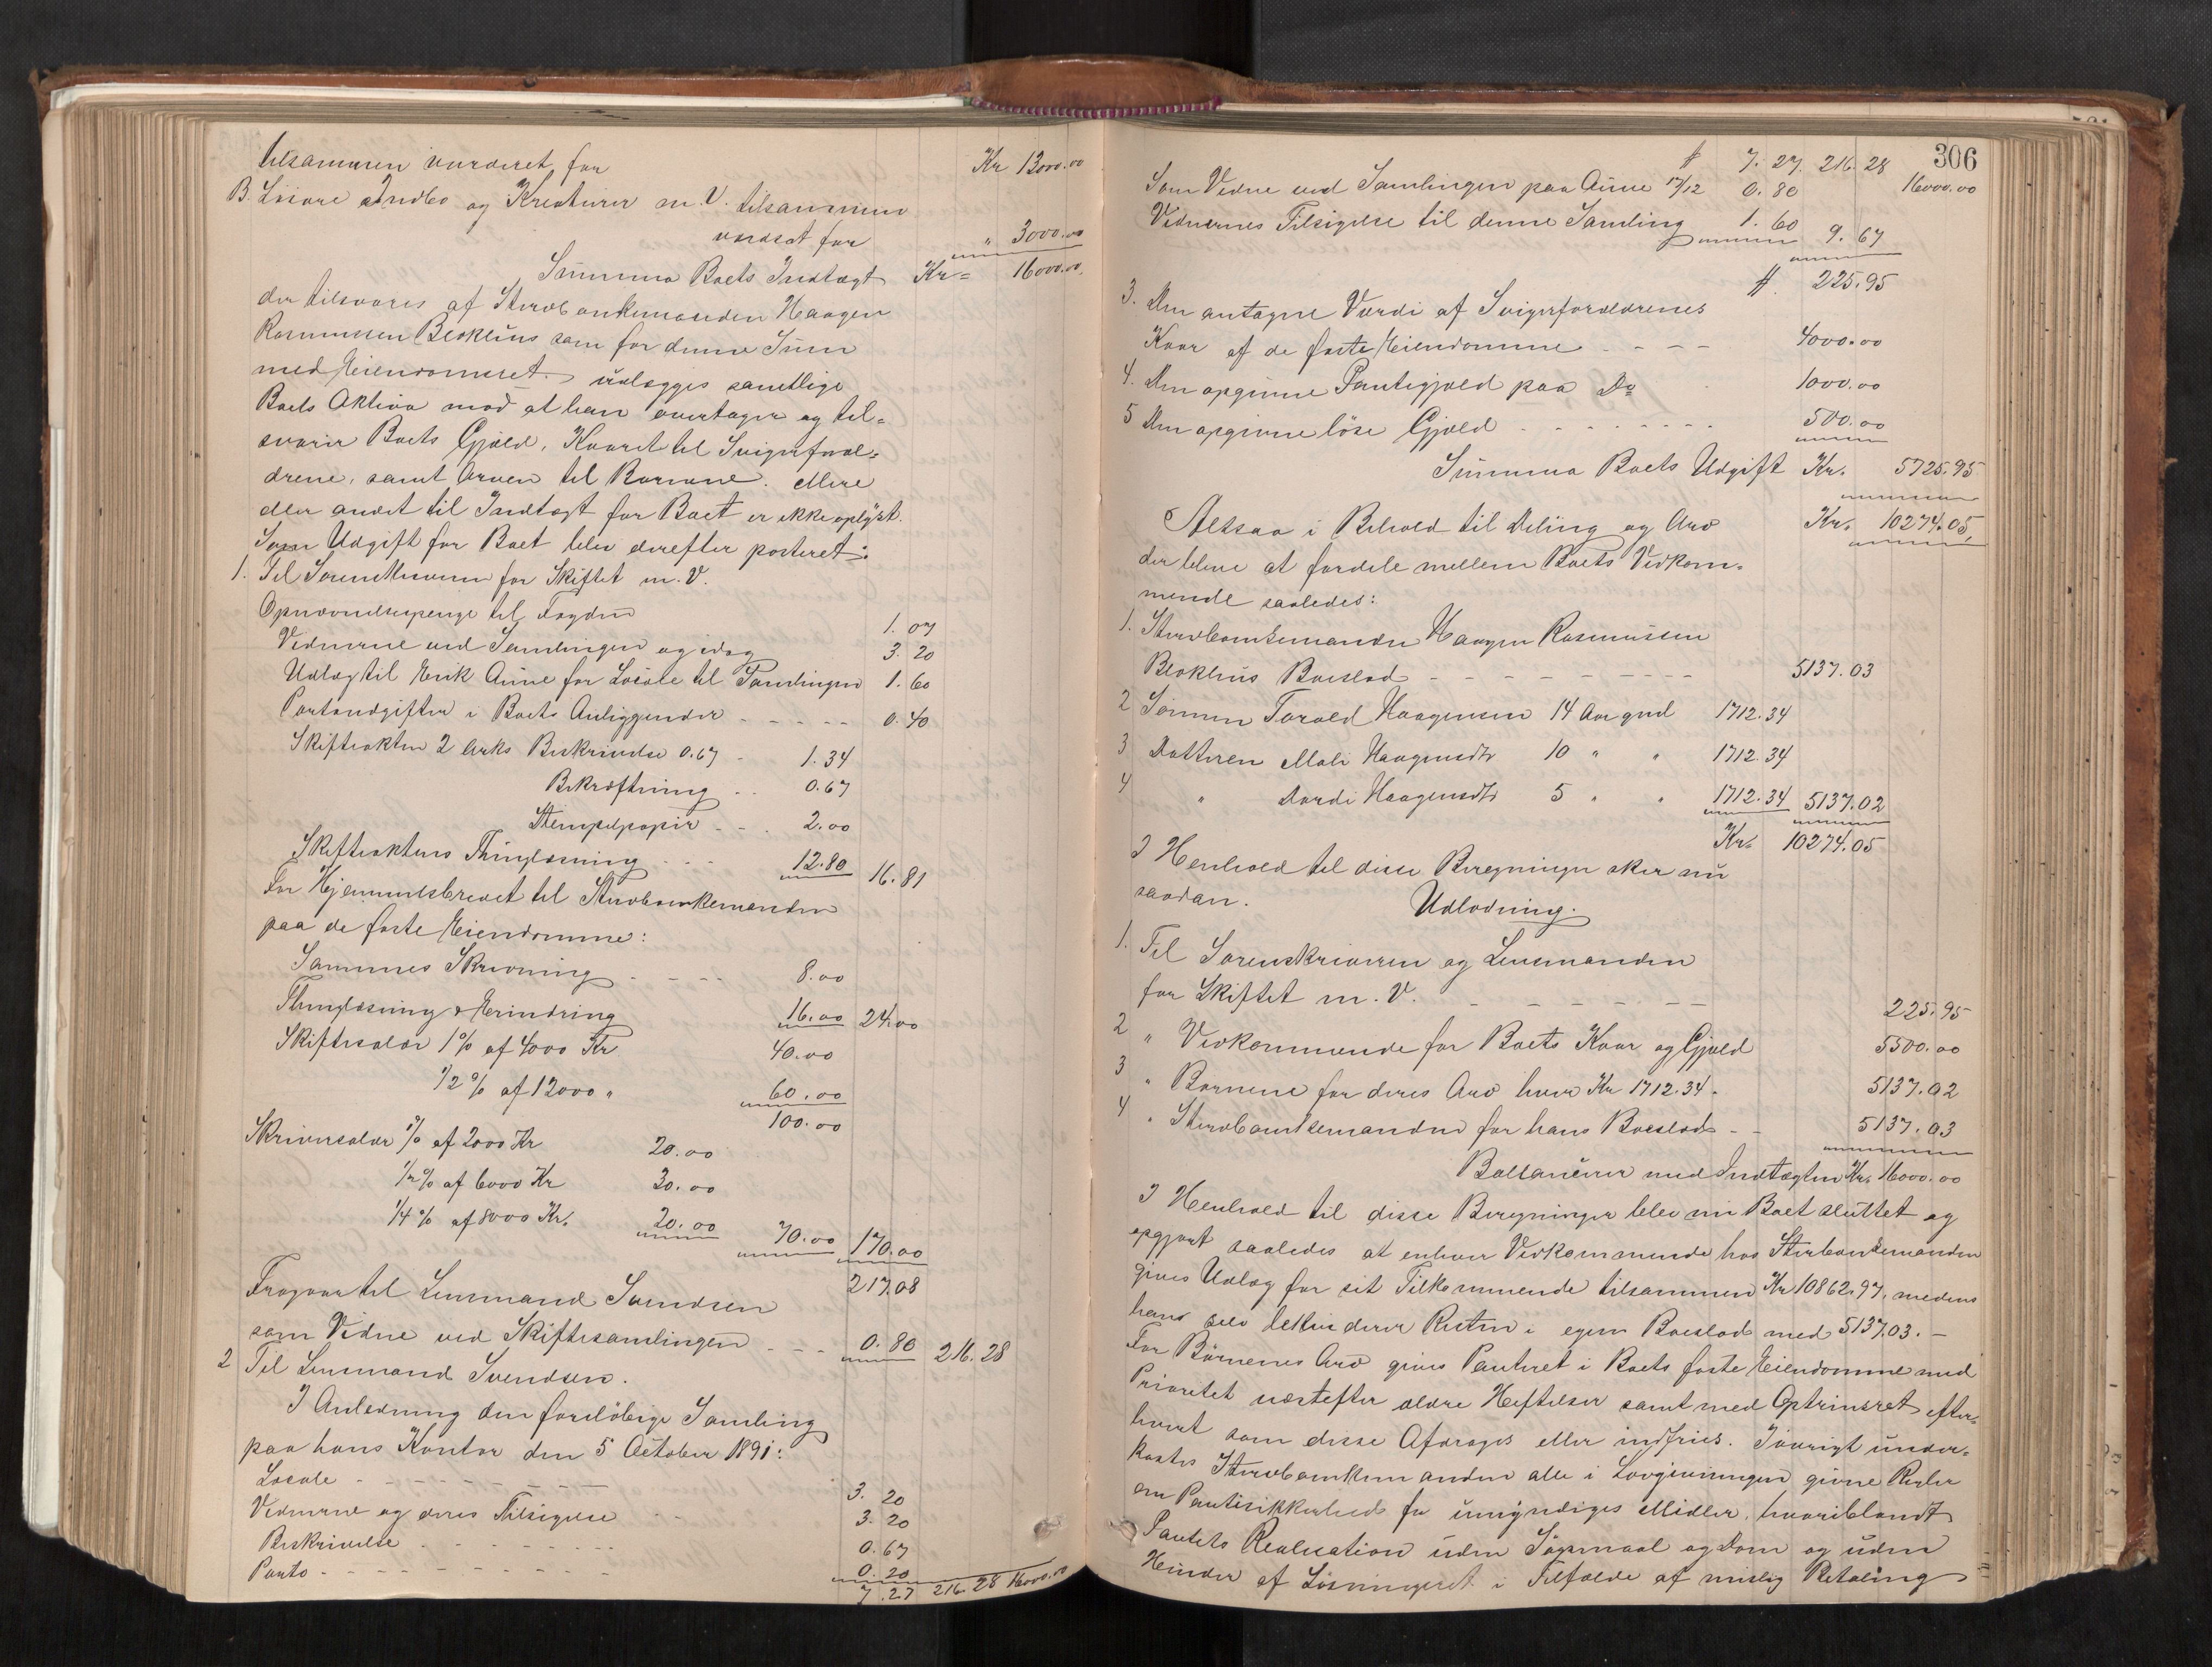 tilsammen vurderet for Kr 13000.00
B. Løsøre Indbo og Kreaturer m. V. tilsammen
vurdert for " 3000.00
Summa Boets Indtægt Kr= 16000.00.
der tilsvares af Stervbonkemanden Haagen
Rasmussen Blokhus som for denne Sum
med Eiendomsret udlægges samtlige
Boets Aktiva mod at han overtager og til=
svarer Boets Gjæld, Kaaret til Svigerforæl=
drene, samt Arven til Børnene. Mere
eller andet til Indtægt for Boet er ikke oplyst.
Som Udgift for Boet blev derefter posteret:
1. Til Sorenskriveren for Skiftet m. V.
Opnævnelsespenge til Fogden 1. 07
Vidnerne ved Samlingen og idag 3. 20
Udlæg til Erik Aune for Locale til Samlingen 1. 60
Portoudgifter i Boets Anliggender - - - - - 0. 40
Skifteakten 2 Arks Beskrivelse 0.67 - 1. 34
Bekræftning - - 0.67
Stempelpapir - - . 2.00
Skifteaktens Thinglæsning - - - 12.80 16.81
For Hjemmelsbrevet til Stervbonkemanden
paa de faste Eiendomme:
Sammes Skrivning - - - - 8.00
Thinglæsning & Erindring 16.00 24.00
Skiftesalær 1% af 4000 Kr 40.00
1/2 % af 12000 " 60.00
100.00
Skriversalær 1% af 2000 Kr 20.00
1/2% af 6000 Kr 30.00
1/4 % af 8000 Kr. 20.00 70.00 170.00
217.08
Fragaar til Lensmand Svendsen
som Vidne ved Skiftesamlingen - - - 0.80 216.28
2 Til Lensmand Svendsen.
I Anledning den foreløbige Samling
paa hans Kontor den 5 October 1891:
Locale - - - - - - - 3. 20
Vidnerne og deres Tilsigelse - - 3. 20
Beskrivelse - - - - - - - - 0. 67
Porto - - - - - - - - - 0. 20
7. 27 216.28 16000.00
306
# 7. 27. 216.28 16000.00
Som Vidne ved Samlingen paa Aune 17/12 0. 80
Vidnernes Tilsigelse til denne Samling 1. 60 9. 67
# 225.95
3. Den antagne Værdi af Svigerforældrenes
Kaar af de faste Eiendomme - - - - 4000.00
4. Den opgivne Pantegjæld paa Do 1000.00
5 Den opgivne løse Gjæld - - - - - - - 500.00
Summa Boets Udgift Kr. 5725.95
Altsaa i Behold til Deling og Arv Kr. 10274.05,
der bleve at fordele mellem Boets Vedkom=
mende saaledes:
1. Stervbonkemanden Haagen Rasmussen
Blokhus Boeslod - - - - - - - - - 5137.03
2 Sønnen Torald Haagensen 14 Aar gml 1712.34
3 Datteren Mali Haagensdtr 10 " " 1712.34
4 " Dordi Haagensdtr 5 " " 1712.34 5137.02
Kr. 10274.05
I Henhold til disse Beregninger sker nu
saadan.
Udlodning.
1. Til Sorenskriveren og Lensmanden
for Skiftet m. V. - - - - - - 225.95
2 " Vedkommende for Boets Kaar og Gjæld 5500.00
3 " Børnene for deres Arv hver Kr 1712.34. 5137.02
4 " Stervbonkemanden for hans Boeslod - - 5137.03
Ballancerer med Indtægten Kr. 16000.00
I Henhold til disse Beregninger blev nu Boet sluttet og
opgjort saaledes at enhver Vedkommende hos Stervbonkemanden
gives Udlæg for sit Tilkommende tilsammen Kr 10862.97, medens
han selv beholder Resten i egen Boeslod med 5137.03. —
For Børnenes Arv gives Panteret i Boets faste Eiendomme med
Prioritet næstefter ældre Heftelser samt med Optrinsret efter=
hvert som disse Afdrages eller indfries. Iøvrigt under=
kastes Stervbonkemanden alle i Lovgivningen givne Regler
om Pantesikkerhed for umyndiges Midler, hvoriblandt
Pantets Realisation uden Søgsmaal og Dom og uden
Hinder af Løsningsret i Tilfælde af mislig Betaling